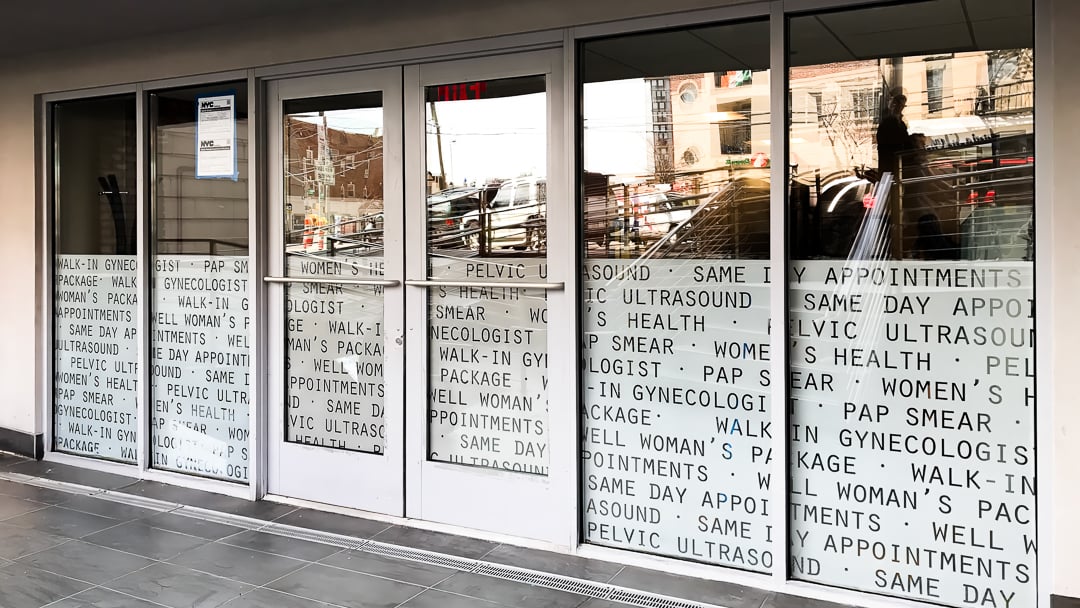 NYC
NYC
WALK-IN GYNEC
PACKAGE· WALK
WOMAN'S PACKA
APPOINTMENTS
· SAME DAY AP
ULTRASOUND ·
· PELVIC ULT
WOMEN'S HEALT
PAP SMEAR ·
GYNECOLOGIST
· WALK-IN GYN
PACKAGE· WAL
GIST · PAP SM
GYNECOLOGIST
· WALK-IN G
WELL WOMAN'S P
INTMENTS · WEL
E DAY APPOINT
OUND · SAME D
· PELVIC ULTR
EN'S HEALTH
PAP SMEAR · WOM
OLOGIST · PAP S
IN GYNECOLOGI
WOMEN'S HE
SMEAR · W
OLOGIST
GE · WALK-I
MAN'S PACKA
· WELL WOM
PPOINTMENTS
D · SAME DA
VIC ULTRASO
HEALTH ·
· PELVIC U
S HEALTH·
SMEAR · WO
NECOLOGIST
WALK-IN GY
PACKAGE · W
WELL WOMAN'S
PPOINTMENTS
· SAME DAY
C ULTRASOUN
ASOUND · SAME D
IC ULTRASOUND
'S HEALTH · P
AP SMEAR · WOME
LOGIST · PAP S
-IN GYNECOLOGI
ACKAGE· WALK
WELL WOMAN'S PA
POINTMENTS · W
SAME DAY APPOI
ASOUND · SAME D
PELVIC ULTRASO
Y APPOINTMENTS
· SAME DAY APPOI
ELVIC ULTRASOUN
N'S HEALTH · PEL
EAR · WOMEN'S H
· PAP SMEAR ·
IN GYNECOLOGIS
KAGE · WALK-IN
LL WOMAN'S PAC
TMENTS · WELL W
Y APPOINTMENTS
ND · SAME DAY